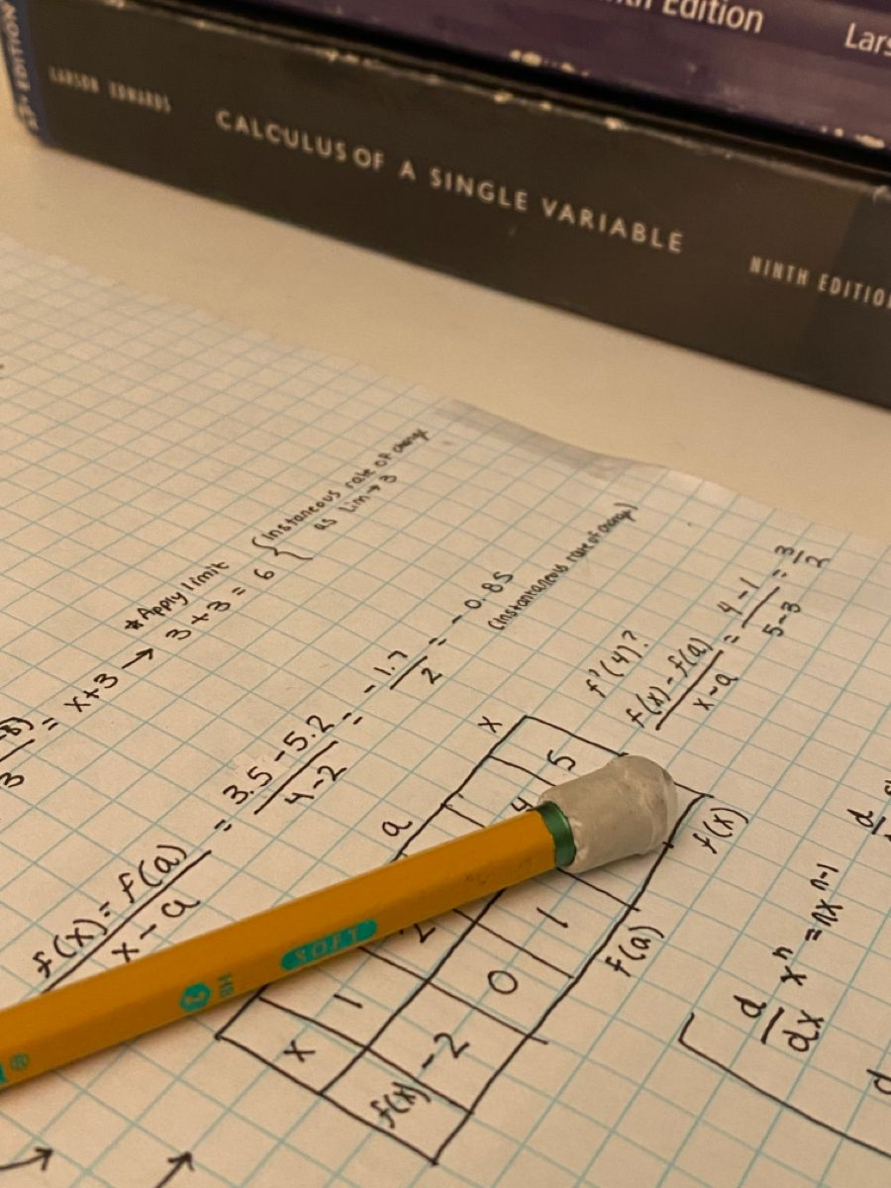 Edition
Lars
EDITION
LARSON EDWARDS
CALCULUS OF A SINGLE VARIABLE
NINTH EDITION
3
= x+3 → 3+3 = 6
*Apply limit
(Instaneous rate of change
as Lim→3
f(x) = f(a) / x-a = 3.5-5.2 / 4-2 = -1.7 / 2 = -0.85
(Instantaneous rate of change)
a x
x 1 2 4 5
f(x) -2 0 1
f(a) f(x)
f'(4)?
f(x)-f(a) / x-a = 4-1 / 5-3 = 3/2
d/dx xⁿ = nxⁿ⁻¹
d
d
SOFT
HB
2
®